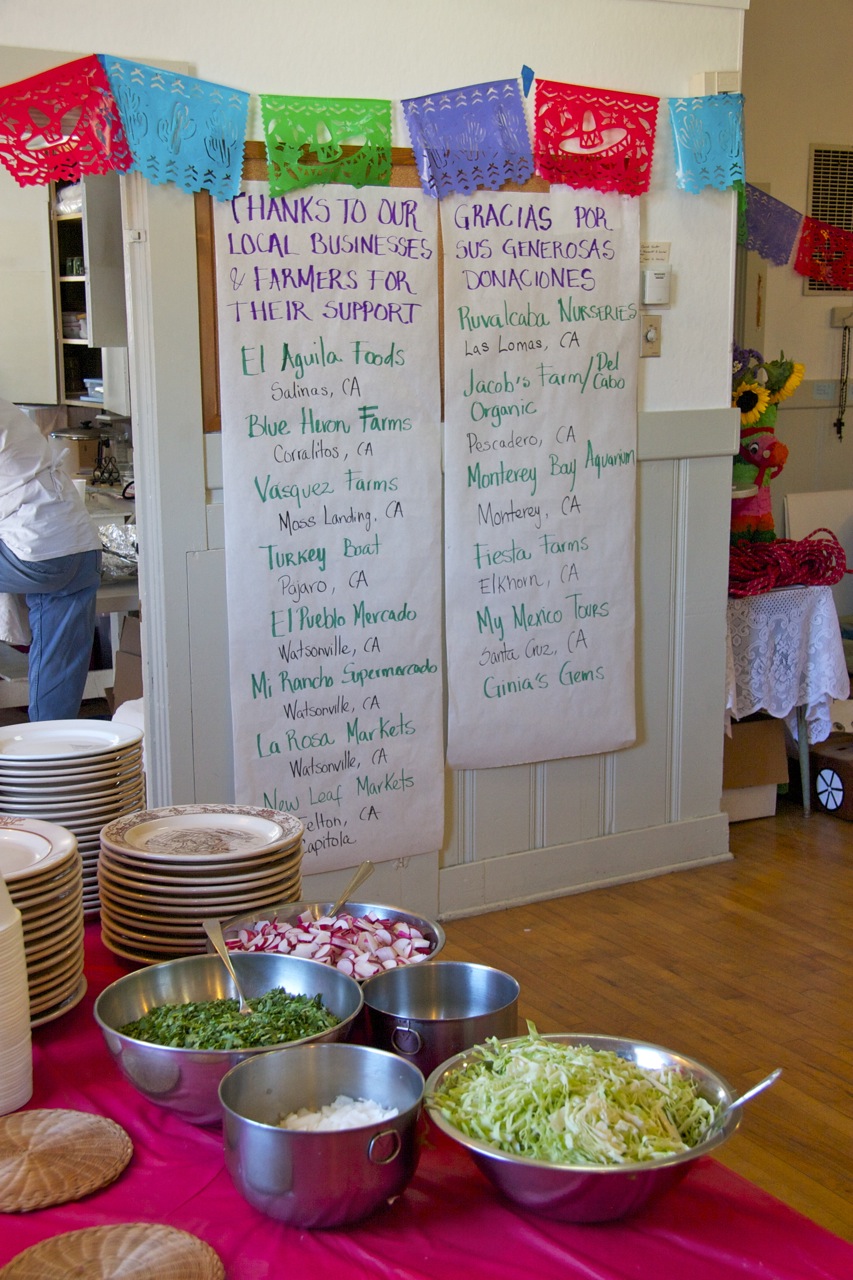 THANKS TO OUR
LOCAL BUSINESSES
& FARMERS FOR
THEIR SUPPORT
El Aguila Foods
Salinas, CA
Blue Heron Farms
Corralitos, CA
Vasquez Farms
Moss Landing, CA
Turkey Boat
Pajaro, CA
El Pueblo Mercado
Watsonville, CA
Mi Rancho Supermercado
Watsonville, CA
La Rosa Markets
Watsonville, CA
New Leaf Markets
Felton, CA
Capitola
GRACIAS POR
SUS GENEROSAS
DONACIONES
Ruvalcaba Nurseries
Las Lomas, CA
Jacob's Farm/Del
Cabo
Organic
Pescadero, CA
Monterey Bay Aquarium
Monterey, CA
Fiesta Farms
Elkhorn, CA
My Mexico Tours
Santa Cruz, CA
Ginia's Gems